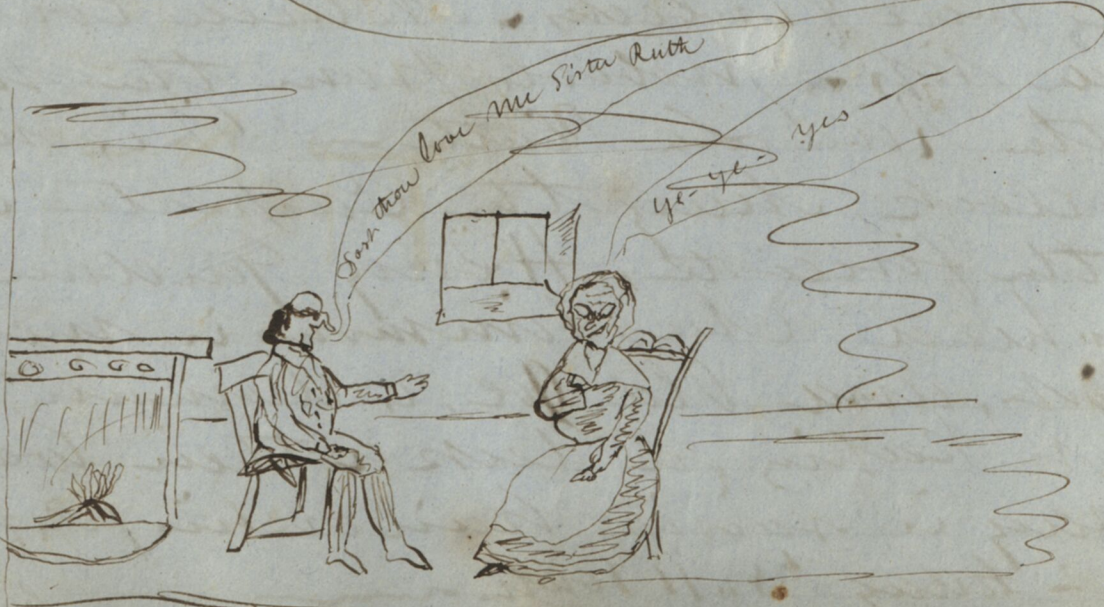 Dost thou love me Sister Ruth
Ye- Ye- Yes